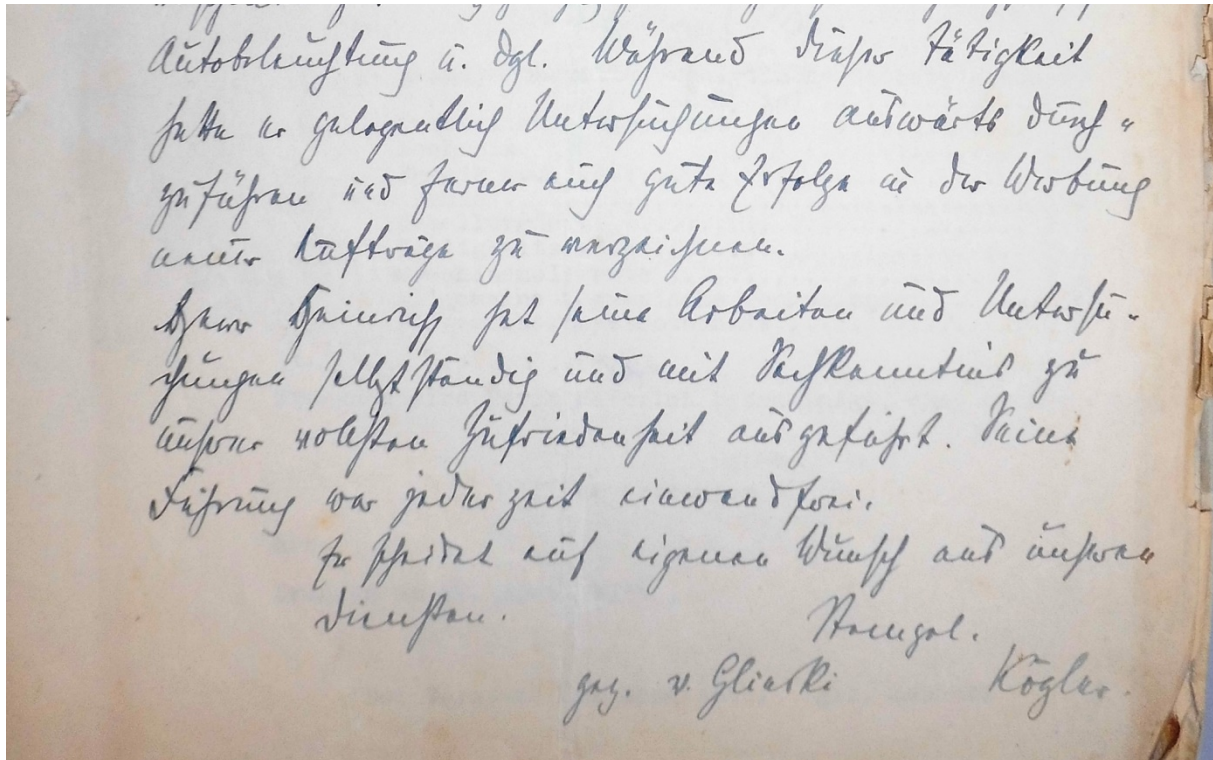 Autobeleuchtung u. dgl. Während dieser Tätigkeit
hatte er gelegentlich Untersuchungen auswärts durch-
zuführen und ferner auch gute Erfolge in der Werbung
neuer Aufträge zu verzeichnen.
Herr Heinrich hat seine Arbeiten und Untersu-
chungen selbstständig und mit Sachkenntnis zu
unserer vollsten Zufriedenheit ausgeführt. Seine
Führung war jederzeit einwandfrei.
Er scheidet auf eigenen Wunsch aus unseren
Diensten.
Stempel.
gez. v. Glinski Kögler.